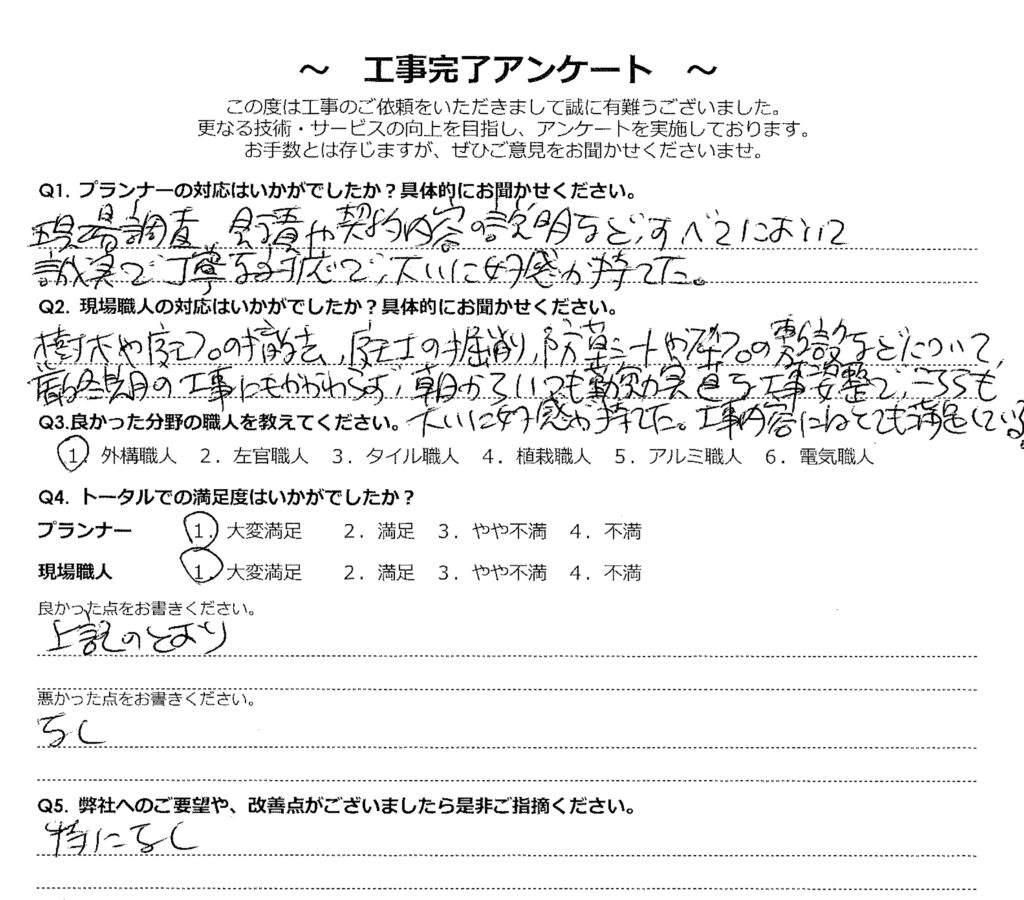 ～　工事完了アンケート　～
この度は工事のご依頼をいただきまして誠に有難うございました。
更なる技術・サービスの向上を目指し、アンケートを実施しております。
お手数とは存じますが、ぜひご意見をお聞かせくださいませ。
Q1. プランナーの対応はいかがでしたか？具体的にお聞かせください。
現場調査、見積や契約内容の説明など、すべてにおいて
誠実で丁寧な対応で、大いに好感が持てた。
Q2. 現場職人の対応はいかがでしたか？具体的にお聞かせください。
樹木や の撤去、庭土の掘削、防草シートや の敷設などについて、
の工事にもかかわらず、朝からいつも勤勉かつ な工事 で、こちらも
Q3.良かった分野の職人を教えてください。 大いに好感が持てた。工事内容にはとても満足している。
1. 外構職人　2. 左官職人　3. タイル職人　4. 植栽職人　5. アルミ職人　6. 電気職人
Q4. トータルでの満足度はいかがでしたか？
プランナー　1. 大変満足　2. 満足　3. やや不満　4. 不満
現場職人　1. 大変満足　2. 満足　3. やや不満　4. 不満
良かった点をお書きください。
上記のとおり
悪かった点をお書きください。
なし
Q5. 弊社へのご要望や、改善点がございましたら是非ご指摘ください。
特になし